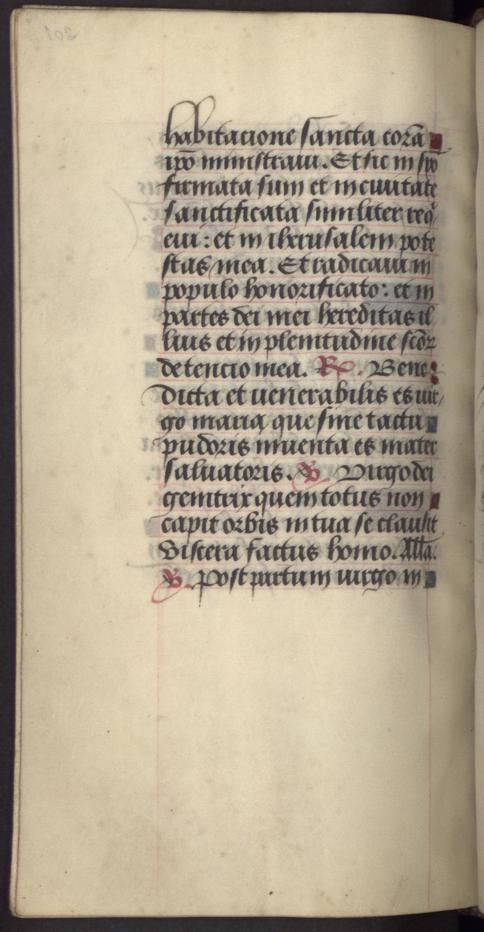 habitacione sancta corā
ipō ministraui. Et sic in syō
firmata sum et in ciuitate
sanctificata similiter req̄
eui: et in iherusalem pote
stas mea. Et radicaui in
populo honorificato: et in
partes dei mei hereditas il
lius et in plenitudine scōꝝ
detencio mea. ℟. Bene
dicta et uenerabilis es uir
go maria que sine tactu
pudoris inuenta es mater
saluatoris. ℣. Virgo dei
genitrix quem totus non
capit orbis in tua se clausit
viscera factus homo. Alla.
℣. Post partum uirgo in